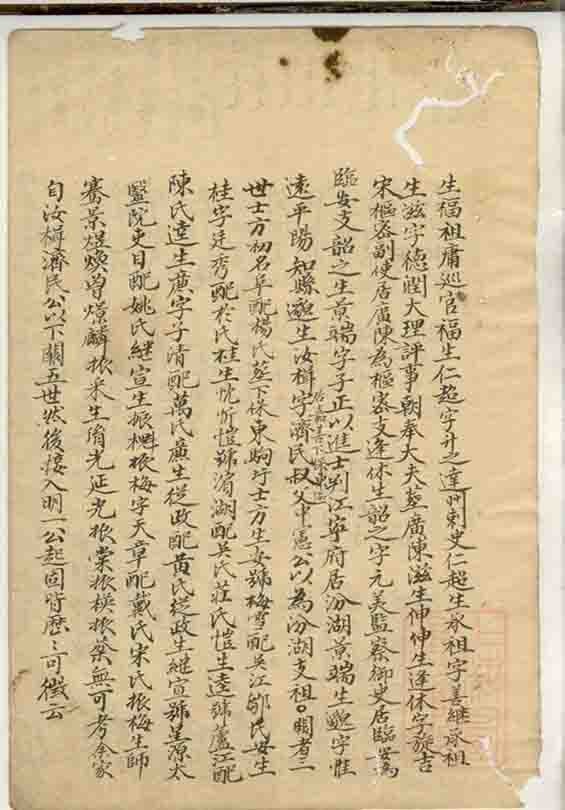 生福祖庸巡官福生仁超字升之達州刺史仁超生承祖字善継承祖
生滋字德潤大理評事朝奉大夫塟廣陳滋生伸伸生逢休字旋吉
宋樞宻副使居廣陳為樞宻支逢休生韶之字元美監察御史居臨安為
臨安支韶之生景端字子正以進士判江寕府居汾湖景端生邈字惟
遠平陽知縣邈生汝楫字濟民叔父中憲公以為汾湖支祖闕者二
世士方初名阜配楊氏塟下保東昫圩士方生女號梅雪配吳江郇氏女生
桂字廷秀配於氏桂生忱忻愷號濵湖配吳氏莊氏愷生逵號蘆江配
陳氏逵生廣字子清配萬氏廣生従政配黄氏従政生継宣號星源太
醫院吏目配姚氏継宣生振梅字天章配戴氏宋氏振梅生師
振采生脩光延光振棠振模振蔡無可考余家
自汝楫濟民公以下闕五世然後接入明一公起固皆歴〻可徵云